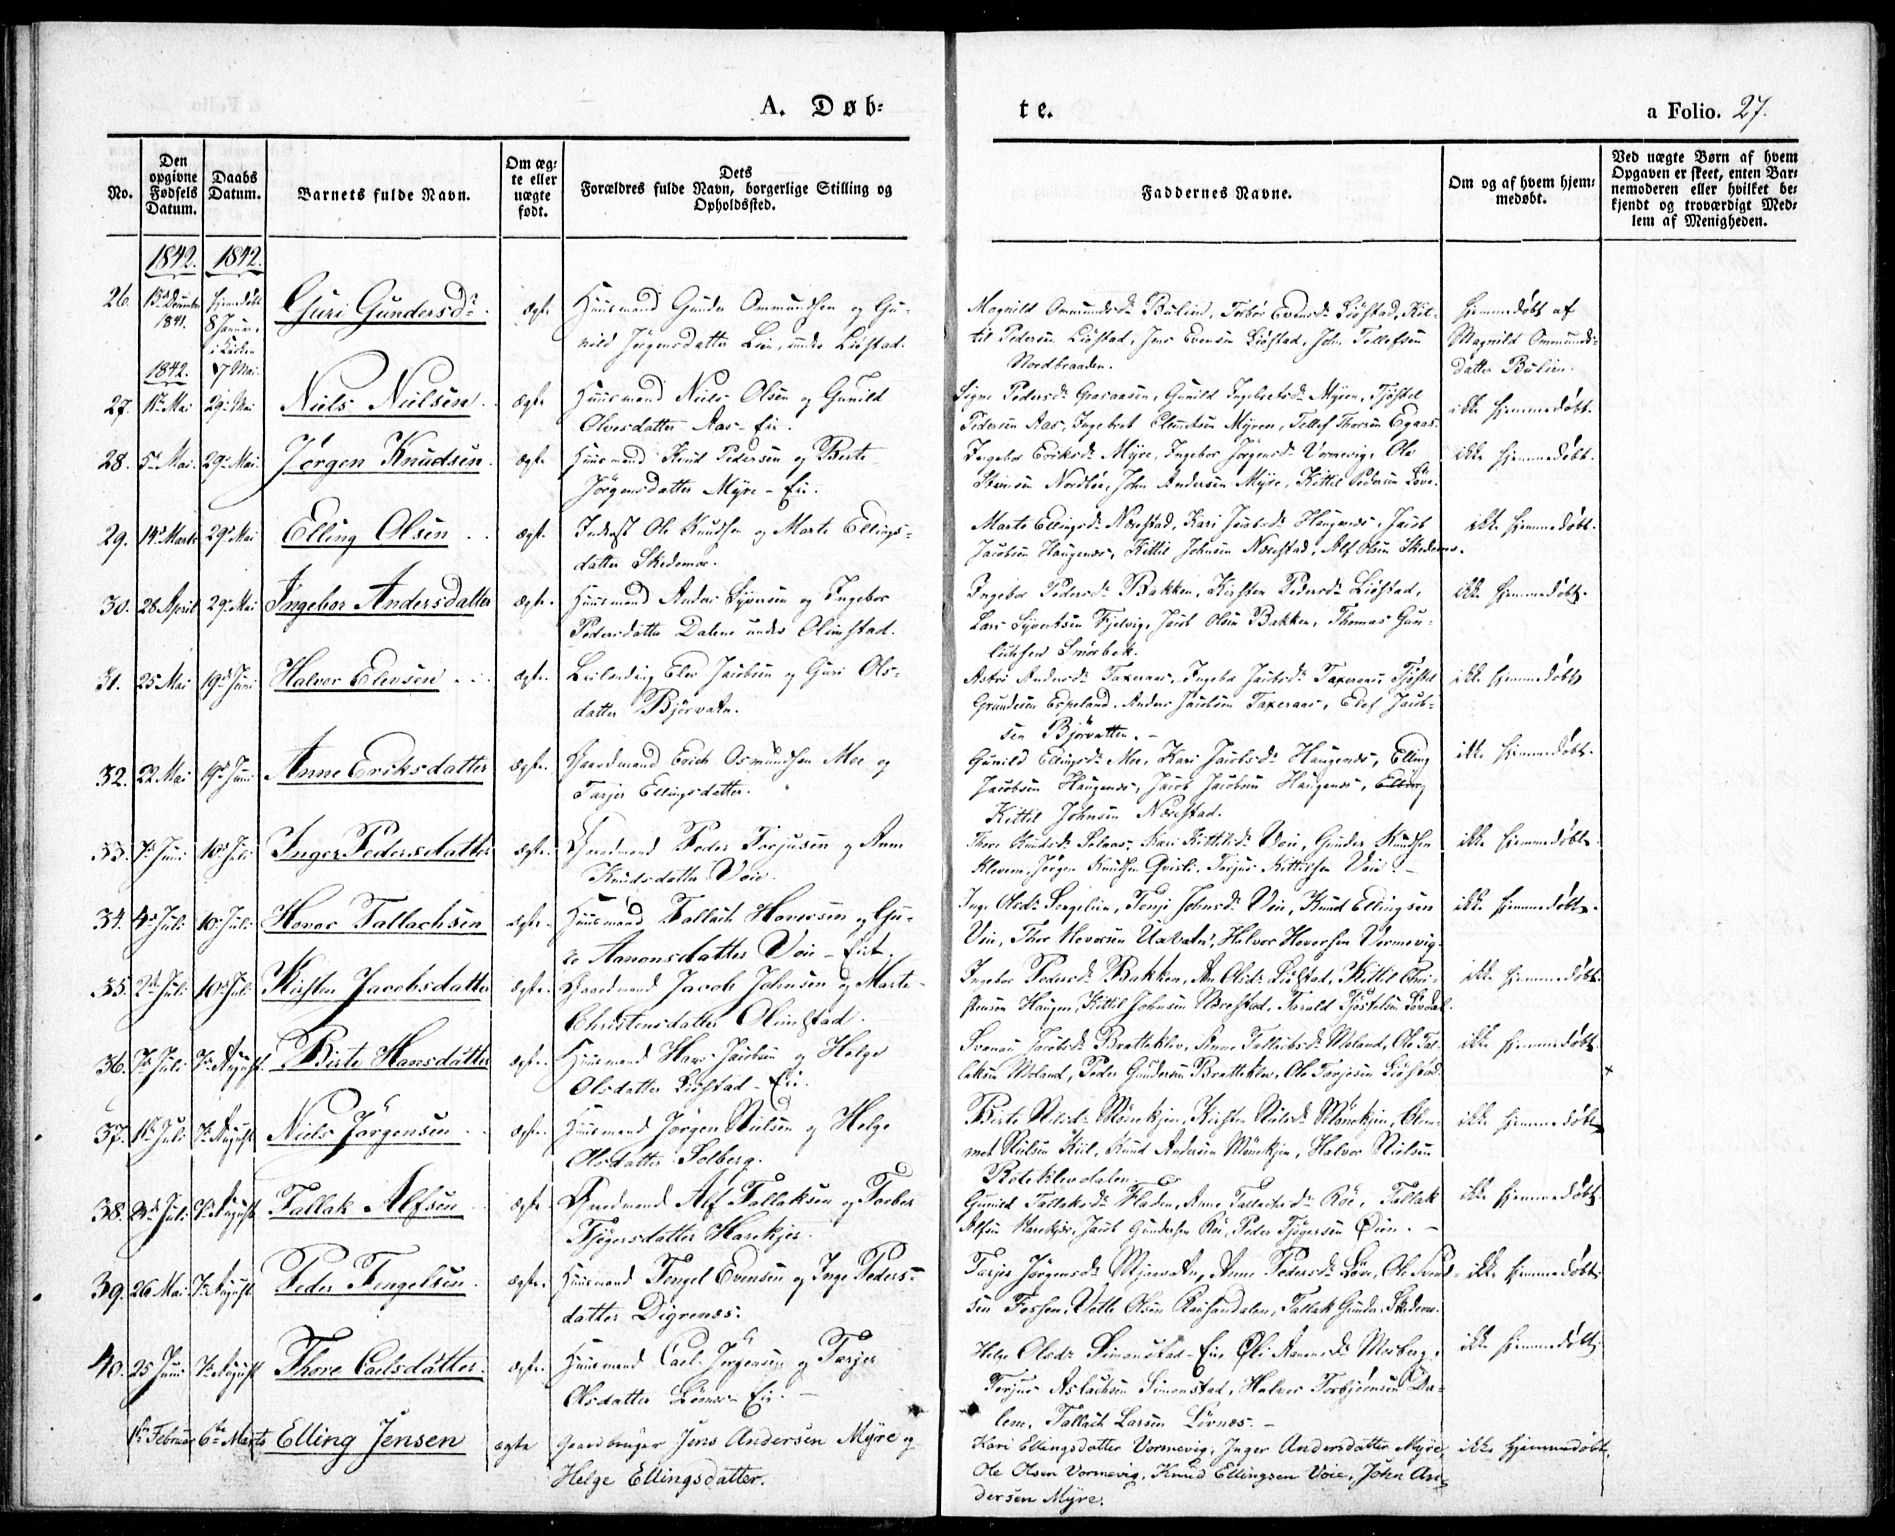 A. Døb-
te.
a Folio. 27.
No.
Den opgivne Fødsels Datum.
Daabs Datum.
Barnets fulde Navn.
Om ægte eller uægte født.
Dets Forældres fulde Navn, borgerlige Stilling og Opholdssted.
Faddernes Navne.
Om og af hvem hjemmedøbt.
Ved uægte Børn af hvem Opgaven er skeet, enten Barnemoderen eller hvilket bekjendt og troværdigt Medlem af Menigheden.
1842. 1842.
26. 1841. hjemmedøbt 8 Januar, i Kirken 7 Mai Guri Gundersdr. ægte Huusmand Gunder Ommundsen og Gunild Jörgensdatter Lien, under Liöstad.
Magnild Ommundsdr Bulien, Torbor Evensdr Liöstad, Kittil Pedersen Liöstad, Jens Evensen Liöstad, John Tellefsen Nordbraaden.
hjemmedøbt af Magnild Ommundsdatter Bulien.
1842.
27. 1ste Mai 29de Mai Niels Nielsen ægte Huusmand Niels Olsen og Gunild Olvesdatter Aas-Eie.
Signe Pedersdr, Gunild Ingebretsdr Myren, Tjöstel Pedersen Aas, Ingebret Clemetsen Myren, Tellef Thorsen Egaas.
ikke hjemmedøbt.
28. 5te Mai 29de Mai Jørgen Knudsen ægte Huusmand Knud Pedersen og Berte Jörgensdatter Myre-Eie.
Ingebor Eriksdr Myre, Ingebor Jörgensdr Vormevig, Ole Nordböe, John Andersen Myre, Kittil Pedersen Löve.
ikke hjemmedøbt.
29. 14de Marts 29de Mai Elling Olsen ægte Inderst Ole Knudsen og Marte Ellingsdatter Skedemoe.
Marte Ellingsdr Næstad, Kari Jacobsdr Haugenes, Jacob Jacobsen Haugenes, Kittil Johnsen Næsestad, Alf Olsen Skedemo.
ikke hjemmedøbt.
30. 28 April 29de Mai Ingebor Andersdatter ægte Huusmand Anders Syversen og Ingebor Pedersdatter Dalene under Olimstad.
Ingebor Pedersdr Bakken, Kirsten Pedersdr Liöstad, Lars Syvertsen Fjelvig, Jacob Olsen Bakken, Thomas Gunlufsen Smörbek.
ikke hjemmedøbt.
31. 25 Mai 19de Juni Halvor Elevsen ægte Leilænding Elev Jacobsen og Guri Olsdatter Björvatn.
Astri Andersdr Taxeraas, Ingebor Jacobsdr Taxeraas, Tjöstel Grundesen Espeland, Anders Jacobsen Taxeraas, Elef Jacobsen Björvatten.
ikke hjemmedøbt
32. 22 Mai 19de Juni Anne Eriksdatter ægte Gaardmand Erich Osmundsen Moe og Tarjer Ellingsdatter.
Gunild Ellingsdr Moe, Kari Jacobsdr Haugenes, Elling Jacobsen Haugenes, Jacob Jacobsen Haugenes, Elling Kittil Johnsen Næsestad.
ikke hjemmedøbt.
33. 7de Juni 10de Juli Inger Pedersdatter ægte Gaardmand Peder Tarjusen og Anne Knudsdatter Voie.
Thore Knudsdr Selaas, Kari Kittilsdr Voie, Gunder Knudsen Klevene, Jörgen Knudsen Qvisli, Tarjus Kittilsen Voie.
ikke hjemmedøbt.
34. 4de Juli 10de Juli Hovor Tallachsen ægte Huusmand Tallach Hovorsen og Aanonsdatter Voie-Eie.
Inge Olsdr, Tonje Johnsdr Voie, Knud Ellingsen Voie, Thor Hovorsen Uxvatn, Halvor Hovorsen Vormevig.
ikke hjemmedøbt.
35. 2de Juli 10de Juli Kirsten Jacobsdatter ægte Gaardmand Jacob Johnsen og Marte Christensdatter Olimstad.
Ingebor Pedersdr Bakken, An Olsdr Liöstad, Kittil Christensen Haugen, Kittil Johnsen Næsestad, Harald Tjöstelsen Lövdal.
ikke hjemmedøbt.
36. 7de Juli 7de August Birte Hansdatter ægte Huusmand Hans Jacobsen og Helge Olsdatter Liöstad-Eie.
Svanau Jacobsdr Bratteklev, Anne Tallachsdr Moland, Ole Tallaksen Moland, Peder Gundersen Bratteklev, Ole Torjesen Liöstad.
ikke hjemmedøbt.
37. Juli 7de August Niels Jørgensen ægte Huusmand Jörgen Nielsen og Helge Olsdatter Solberg.
Birte Nilsdr Mönekjen, Kirsten Nielsdr Mönekjen, Clemet Nielsen Kiil, Knud Andersen Mönekjen, Halvor Nielsen Boteklevdalen.
ikke hjemmedøbt
38. Juli 7de August Tallak Alfsen ægte Gaardmand Alf Tallaksen og Torbor Tjögersdatter Harekjer.
Gunild Tallaksdr Fladen, Anne Tallachsdr Röe, Tallak Alfsen Harekjer, Jacob Gundersen Röe, Peder Tjögersen Öien.
ikke hjemmedøbt
39. 26 Mai 7de August Peder Tengelsen ægte Huusmand Tengel Evensen og Inge Pedersdatter Digrenæs.
Tarjer Jörgensdr Mjørvatn, Anne Pedersdr Löve, Ole Fossen, Vetle Olsen, Tallak Gunders. Skedemo.
ikke hjemmedøbt
40. 25 Juni 7de August Thore Carlsdatter ægte Huusmand Carl Jörgensen og Tarjer Olsdatter Eie.
Helge Olsdr Simonstad-Eie, Oli Aanonsdr Mosberg, Torjus Aslachsen Simonstad, Halvor Torbjörnsen Dalene, Tallach Larsen Lövnes.
ikke hjemmedøbt
1ste Februar 6te Marts Elling Jensen ægte Gaardbruger Jens Andersen Myre og Helge Ellingsdatter.
Kari Ellingsdatter Vormevig, Inger Andersdatter Myre, Ole Olsen Vormevig, Knud Ellingsen Voie, John Andersen Myre.
ikke hjemmedøbt.